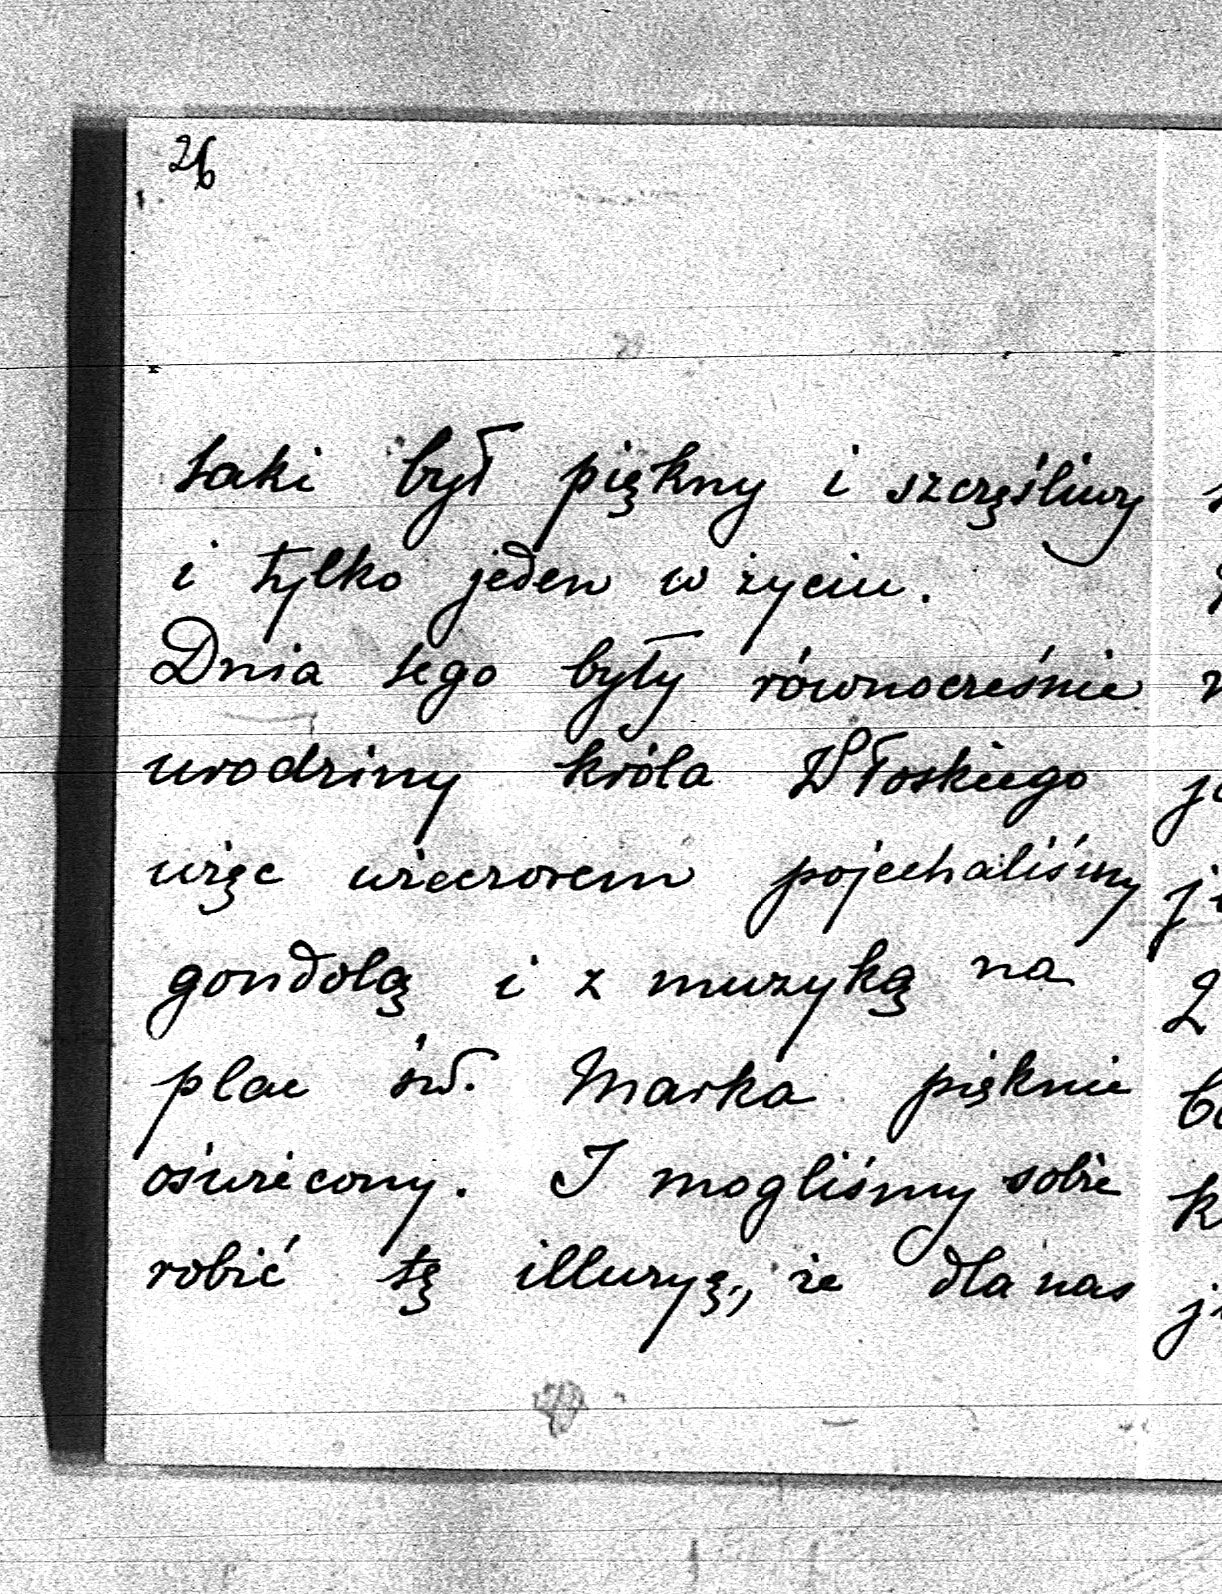 26
taki był piękny i szczęśliwy
i tylko jeden w życiu.
Dnia tego były równocześnie
urodziny króla Włoskiego
więc wieczorem pojechaliśmy
gondolą i z muzyką na
plac św. Marka pięknie
oświecony. I mogliśmy sobie
robić tę illuzyę, że dla nas